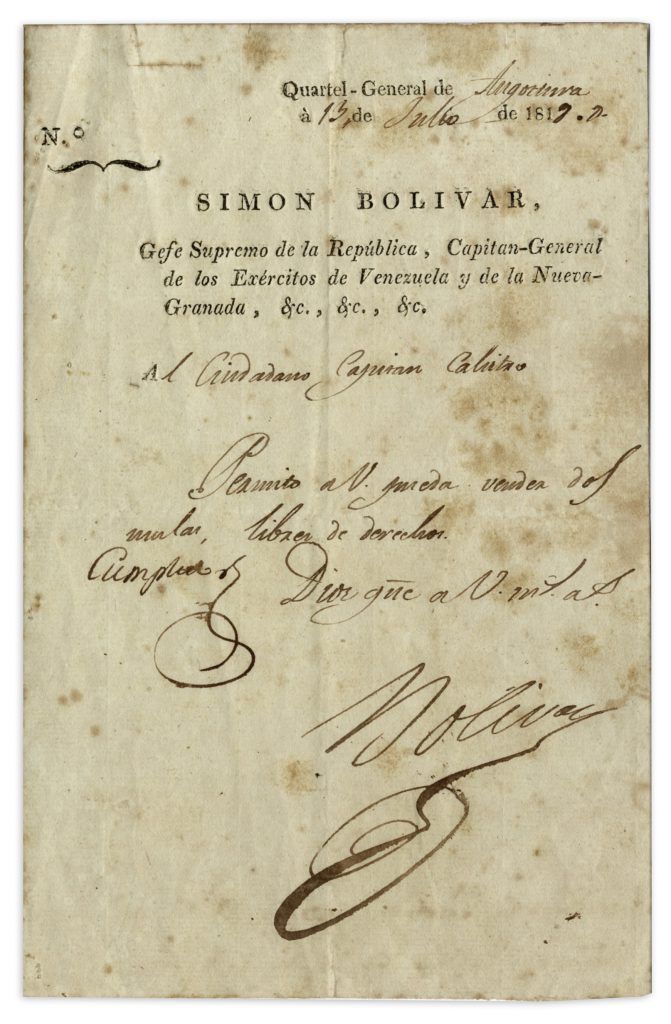 Quartel-General de Angostura
à 13, de Julio de 1817.
N.º
SIMON BOLIVAR,
Gefe Supremo de la República, Capitan-General
de los Exércitos de Venezuela y de la Nueva-
Granada, &c., &c., &c.
Al Ciudadano Capitan
Permito a V. pueda vender dos
mulas, libres de derechos.
Dios gue a V. ms. as.
Bolivar